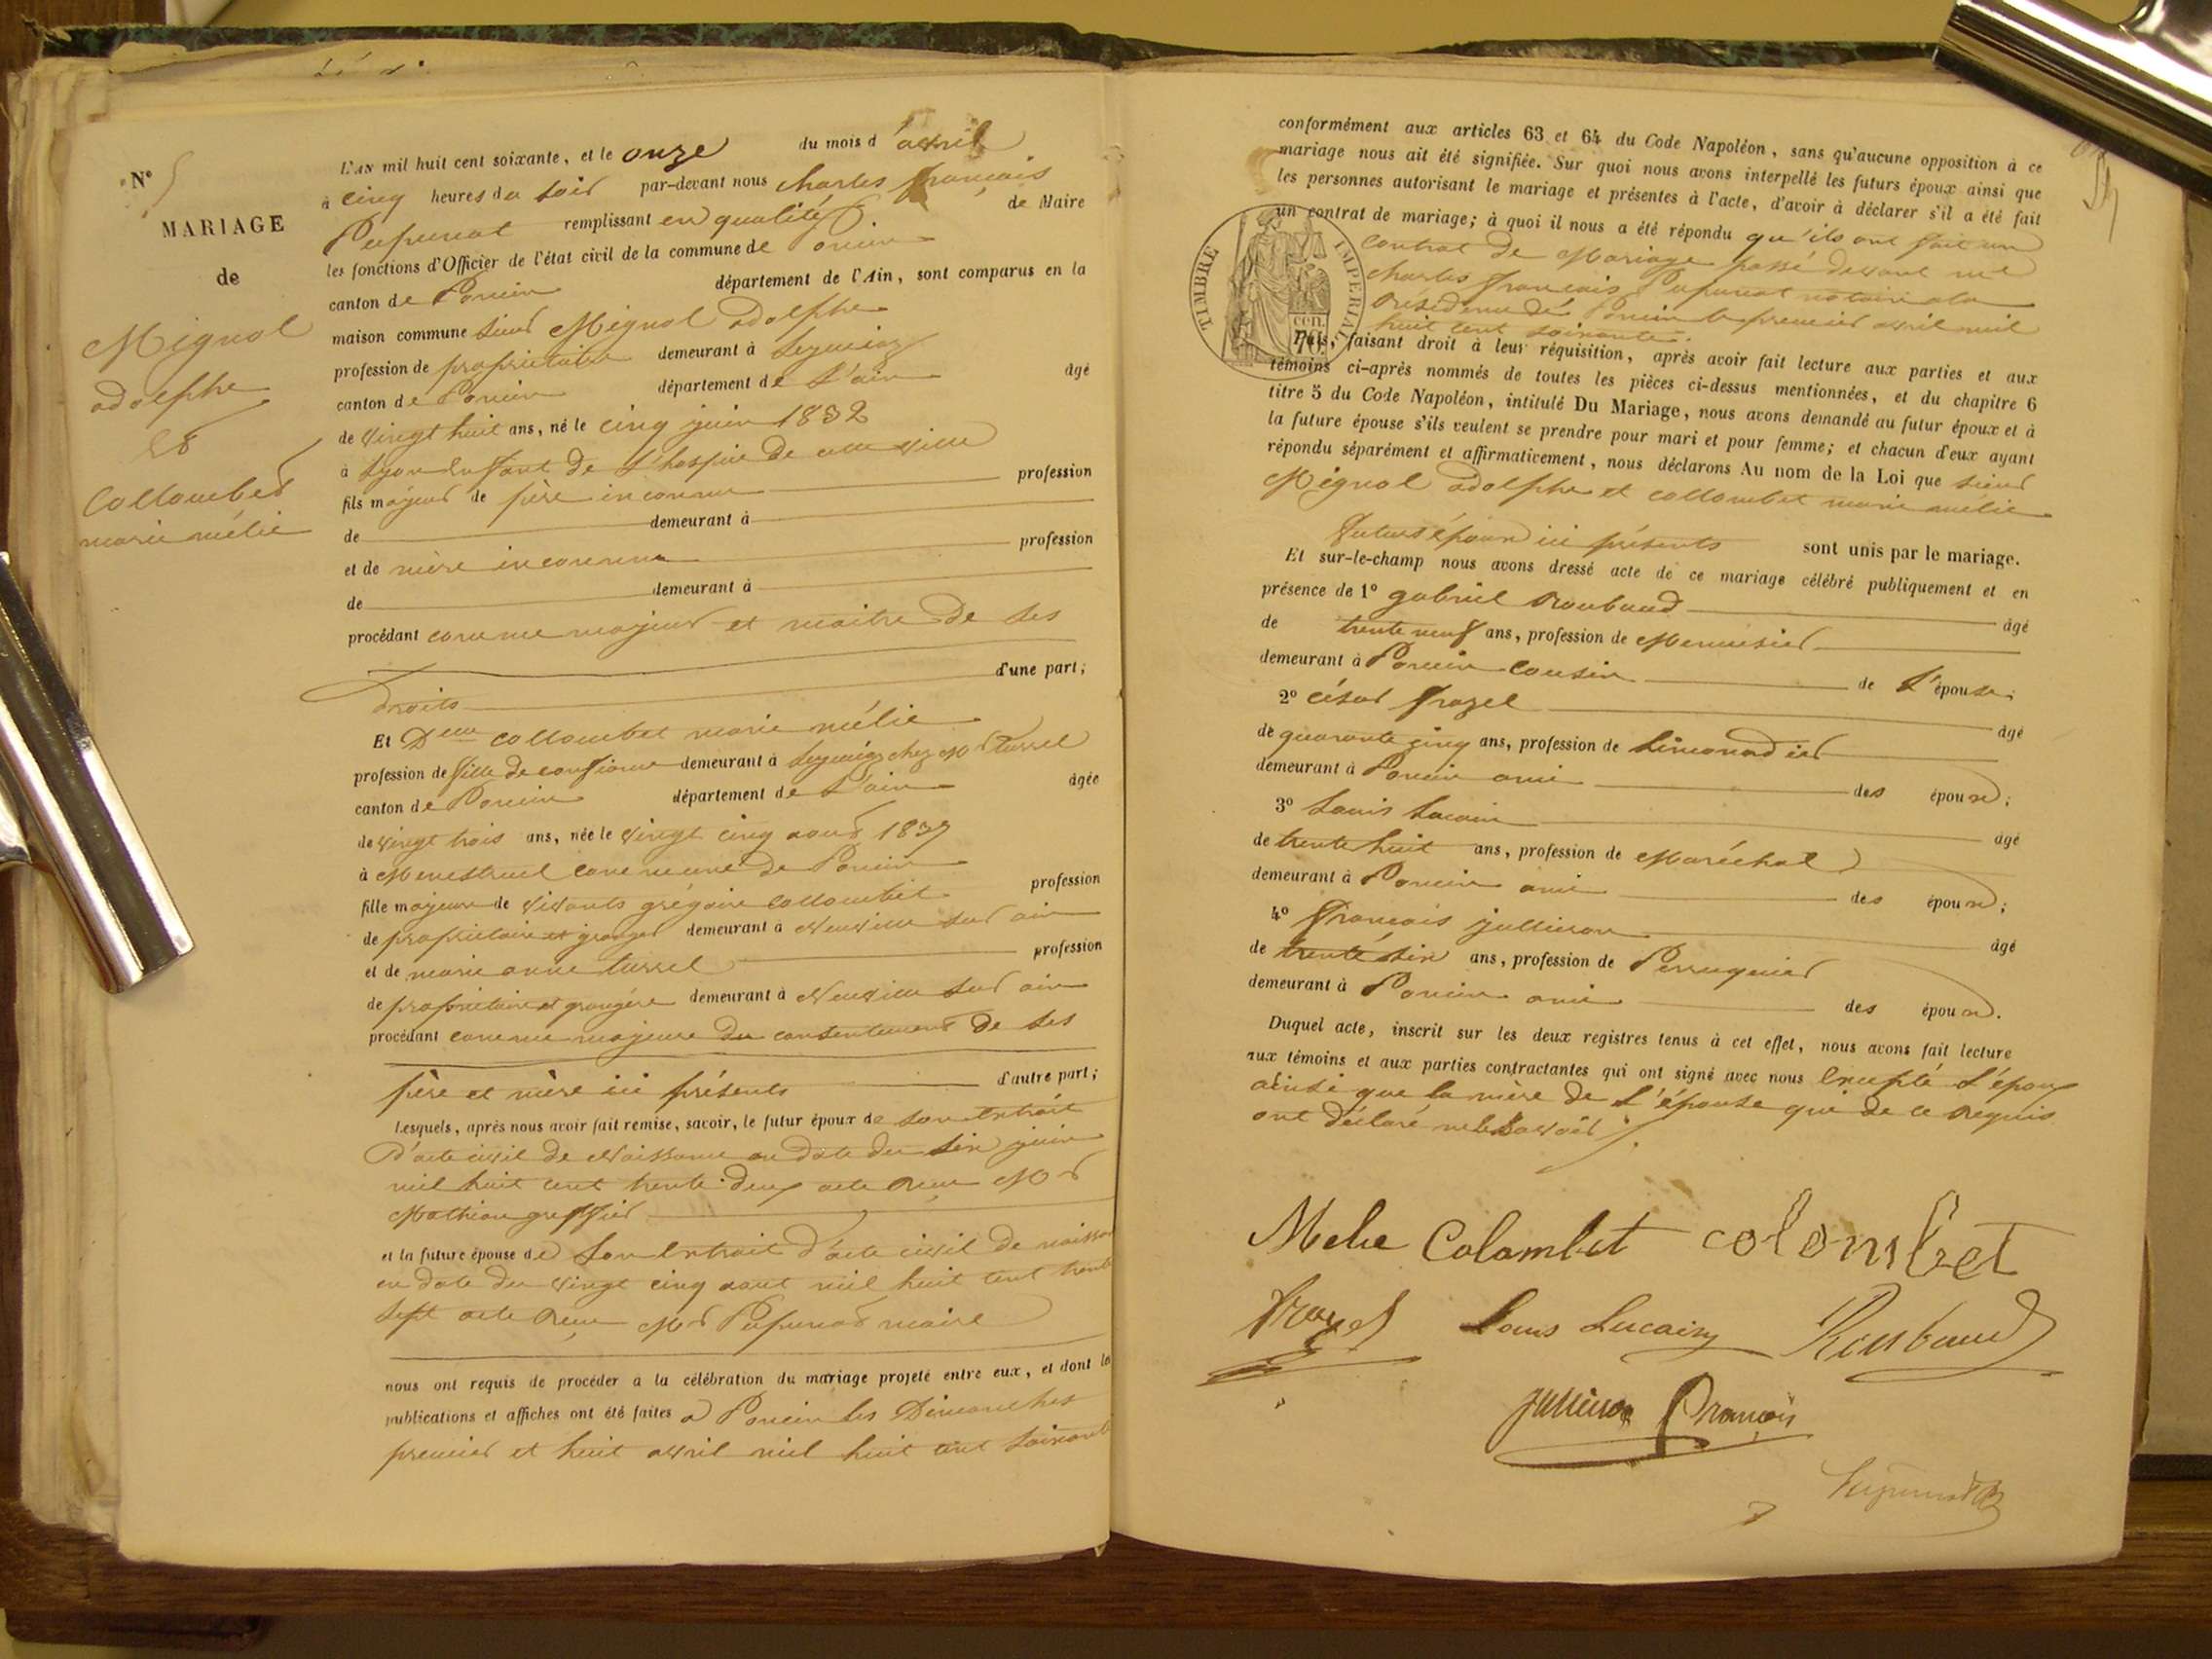 N° 5
MARIAGE
de
Mignol
adolphe
Et
Collombet
marie mélie
L'AN mil huit cent soixante, et le onze du mois d'avril
à cinq heures du soir par-devant nous charles françois
Pupunat remplissant en qualité de Maire
les fonctions d'Officier de l'état civil de la commune de Poncin
canton de Poncin département de l'Ain, sont comparus en la
maison commune sieur Mignol adolphe
profession de propriétaire demeurant à
canton de Poncin département de L'ain âgé
de vingt huit ans, né le cinq juin 1832
à Lyon Enfant de L'hospice de cette ville
fils majeur de père inconnu profession
de demeurant à
et de mère inconnue profession
de demeurant à
procédant comme majeur et maitre de ses
d'une part;
droits
Et Delle collombet marie mélie
profession de fille de confiance demeurant à chez Mr Tussel
canton de Poncin département de L'ain âgée
de vingt trois ans, née le vingt cinq aout 1837
à Menestruel commune de Poncin
fille majeure de vivants grégoire collombet profession
de propriétaire et granger demeurant à Neuville sur ain
et de marie anne tussel profession
de propriétaire et grangère demeurant à Neuville sur ain
procédant comme majeure du consentement de ses
père et mère ici présents d'autre part;
Lesquels, après nous avoir fait remise, savoir, le futur époux de son Extrait
D'acte civil de Naissance en date du six juin
mil huit cent trente deux acte reçu Mr
Mathian greffier
et la future épouse de son Extrait d'acte civil de naissan
en date du vingt cinq aout mil huit cent trente
sept acte reçu Mr Pupunat maire
nous ont requis de procéder à la célébration du mariage projeté entre eux, et dont les
publications et affiches ont été faites à Poncin les Dimanches
premier et huit avril mil huit cent soixante
conformément aux articles 63 et 64 du Code Napoléon, sans qu'aucune opposition à ce
mariage nous ait été signifiée. Sur quoi nous avons interpellé les futurs époux ainsi que
les personnes autorisant le mariage et présentes à l'acte, d'avoir à déclarer s'il a été fait
un contrat de mariage; à quoi il nous a été répondu qu'ils ont fait un
contrat de Mariage passé devant me
charles françois Pupunat notaire a la
residence de Poncin le premier avril mil
huit cent soixante.
TIMBRE IMPERIAL
cen.
70.
Puis, faisant droit à leur réquisition, après avoir fait lecture aux parties et aux
témoins ci-après nommés de toutes les pièces ci-dessus mentionnées, et du chapitre 6
titre 5 du Code Napoléon, intitulé Du Mariage, nous avons demandé au futur époux et à
la future épouse s'ils veulent se prendre pour mari et pour femme; et chacun d'eux ayant
répondu séparément et affirmativement, nous déclarons Au nom de la Loi que sieur
Mignol adolphe et collombet marie mélie
futurs époux ici présents sont unis par le mariage.
Et sur-le-champ nous avons dressé acte de ce mariage célébré publiquement et en
présence de 1° gabriel Roubaud âgé
de trente neuf ans, profession de Menuisier
demeurant à Poncin cousin de L'épouse;
2° césar frazel âgé
de quarante cinq ans, profession de Limonadier
demeurant à Poncin ami des époux;
3° Louis Lucain âgé
de trente huit ans, profession de Maréchal
demeurant à Poncin ami des époux;
4° françois jullieron âgé
de trente six ans, profession de Perruquier
demeurant à Poncin ami des époux.
Duquel acte, inscrit sur les deux registres tenus à cet effet, nous avons fait lecture
aux témoins et aux parties contractantes qui ont signé avec nous Excepté L'époux
ainsi que la mère de L'épouse qui de ce requis
ont déclaré ne le savoir
Melie Colombet colombet
frazel Louis Lucain Roubaud
jullieron François
Pupunat